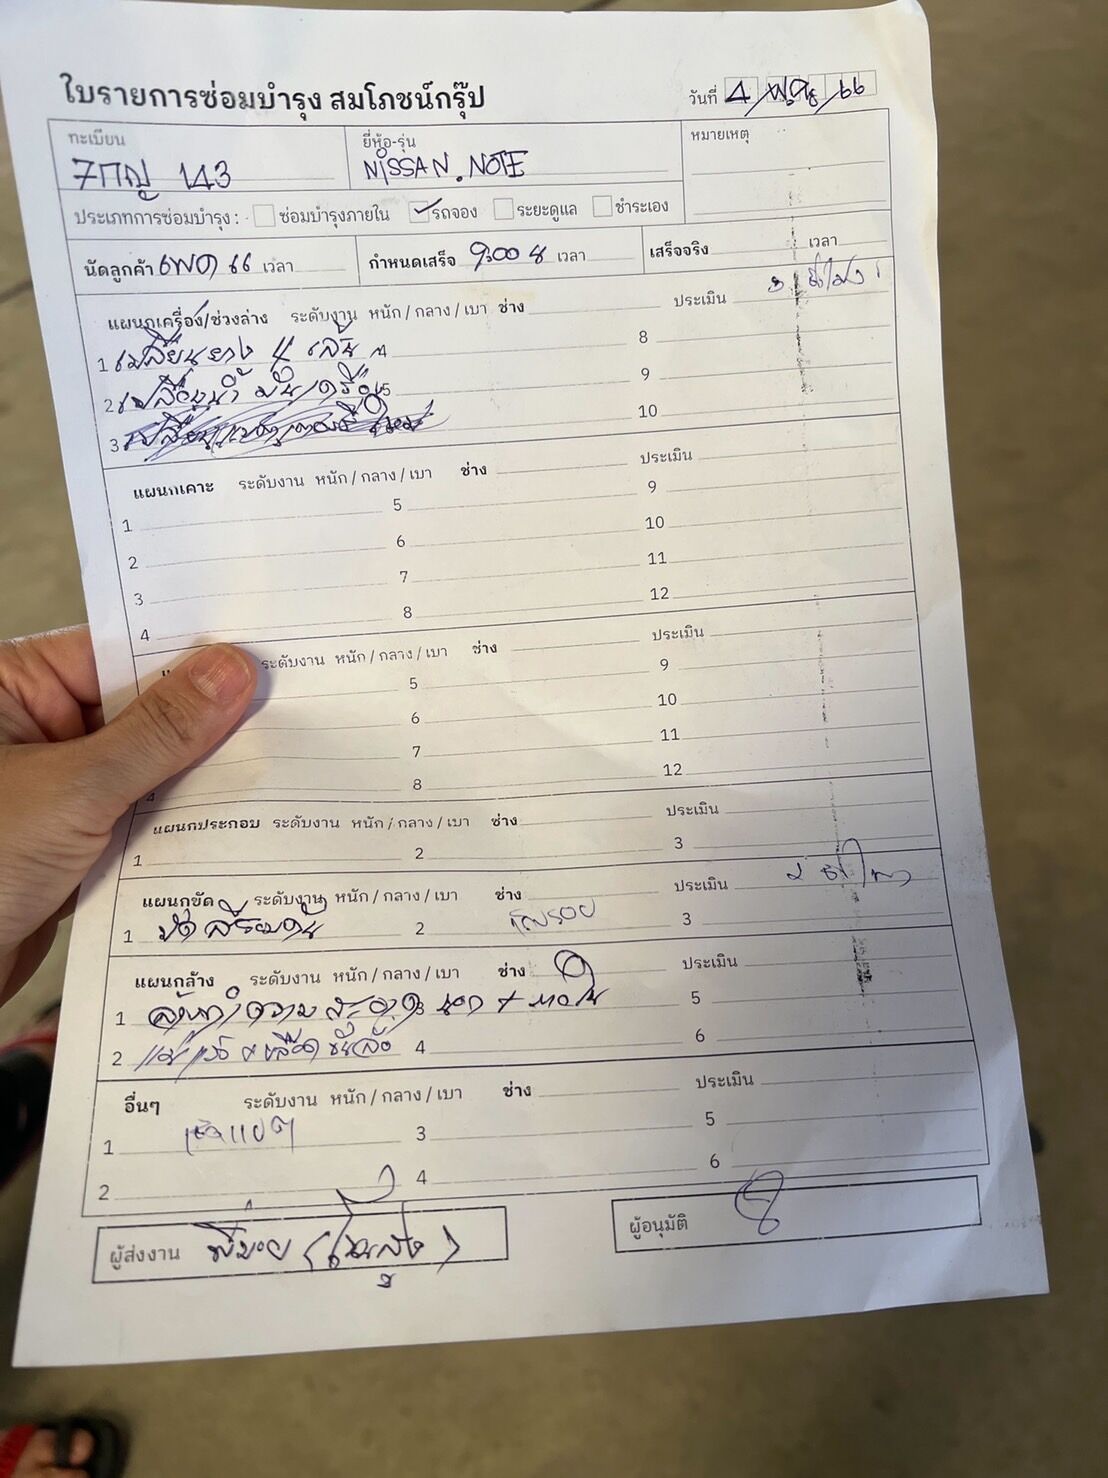 ใบรายการซ่อมบำรุง สมโภชน์กรุ๊ป
วันที่ 4 / / 66
ทะเบียน
7กญ 143
ยี่ห้อ-รุ่น
NISSAN. NOTE
หมายเหตุ
ประเภทการซ่อมบำรุง : ซ่อมบำรุงภายใน รถจอง ระยะดูแล ชำระเอง
นัดลูกค้า 66 เวลา
กำหนดเสร็จ 9.00 เวลา
เสร็จจริง เวลา
แผนกเครื่อง/ช่วงล่าง ระดับงาน หนัก / กลาง / เบา ช่าง ประเมิน
1 เปลี่ยนยาง 4 เส้น 4 8
2 เปลี่ยนน้ำมันเครื่อง 5 9
3 10
แผนกเคาะ ระดับงาน หนัก / กลาง / เบา ช่าง ประเมิน
1 5 9
2 6 10
3 7 11
4 8 12
ระดับงาน หนัก / กลาง / เบา ช่าง ประเมิน
5 9
6 10
7 11
4 8 12
แผนกประกอบ ระดับงาน หนัก / กลาง / เบา ช่าง ประเมิน
1 2 3
แผนกขัด ระดับงาน หนัก / กลาง / เบา ช่าง ประเมิน
1 ขัดสีรอบคัน 2 3
แผนกล้าง ระดับงาน หนัก / กลาง / เบา ช่าง ประเมิน
1 ล้างทำความสะอาด นอก + ใน 5
2 4 6
อื่นๆ ระดับงาน หนัก / กลาง / เบา ช่าง ประเมิน
1 3 5
2 4 6
ผู้ส่งงาน
ผู้อนุมัติ